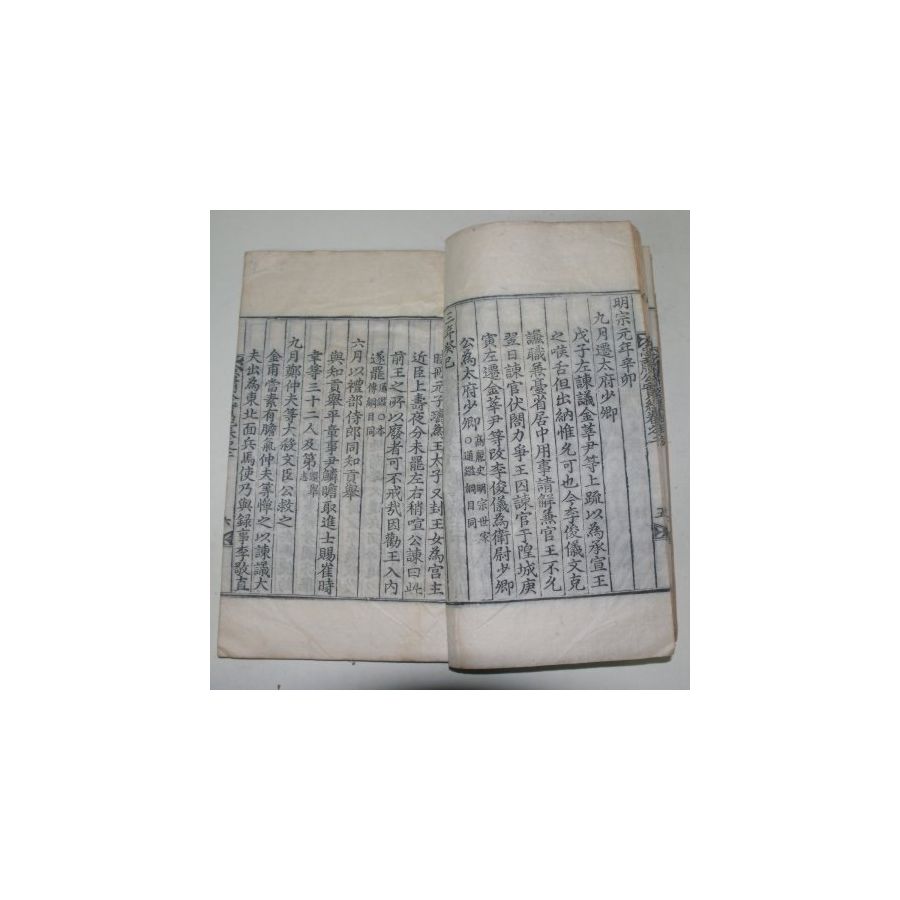 明宗元年辛卯
九月遷太府少卿
戊子左諫議金莘尹等上疏以為承宣王
之喉舌但出納惟允可也今李俊儀文克
謙職兼臺省居中用事請解兼官王不允
翌日諫官伏閤力爭王因諫官于隍城庚
寅左遷金莘尹等改李俊儀為衛尉少卿
公為太府少卿 高麗史明宗世家○通鑑綱目同
三年癸巳
冊元子 為王太子又封王女為宮主
近臣上壽夜分未罷左右稍喧公諫曰此
前王之所以廢者可不戒哉因勸王入內
遂罷 通鑑○本傳綱目同
六月以禮部侍郎同知貢舉
與知貢舉平章事尹鱗瞻取進士賜崔時
幸等三十二人及第 選舉志
九月鄭仲夫等大殺文臣公救之
金甫當素有膽氣仲夫等憚之以諫議大
夫出為東北面兵馬使乃與錄事李敬直